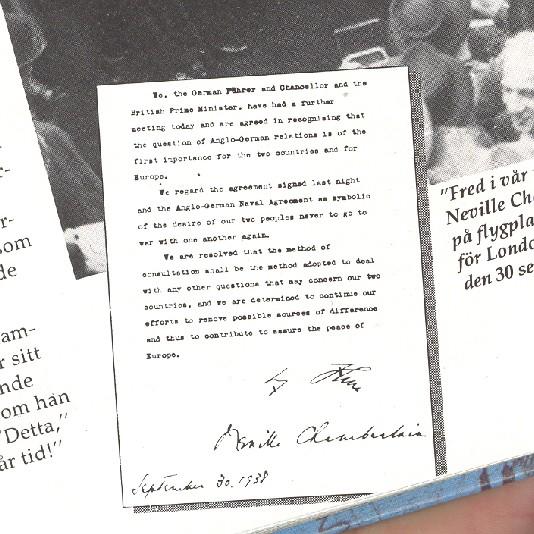 We, the German Führer and Chancellor and the
British Prime Minister, have had a further
meeting today and are agreed in recognising that
the question of Anglo-German relations is of the
first importance for the two countries and for
Europe.
We regard the agreement signed last night
and the Anglo-German Naval Agreement as symbolic
of the desire of our two peoples never to go to
war with one another again.
We are resolved that the method of
consultation shall be the method adopted to deal
with any other questions that may concern our two
countries, and we are determined to continue our
efforts to remove possible sources of difference
and thus to contribute to assure the peace of
Europe.
Neville Chamberlain
September 30, 1938
r-
r-
om
de
am-
r sitt
nde
om han
"Detta,"
år tid!"
"Fred i vår
Neville Ch
på flygpla
för Londo
den 30 se